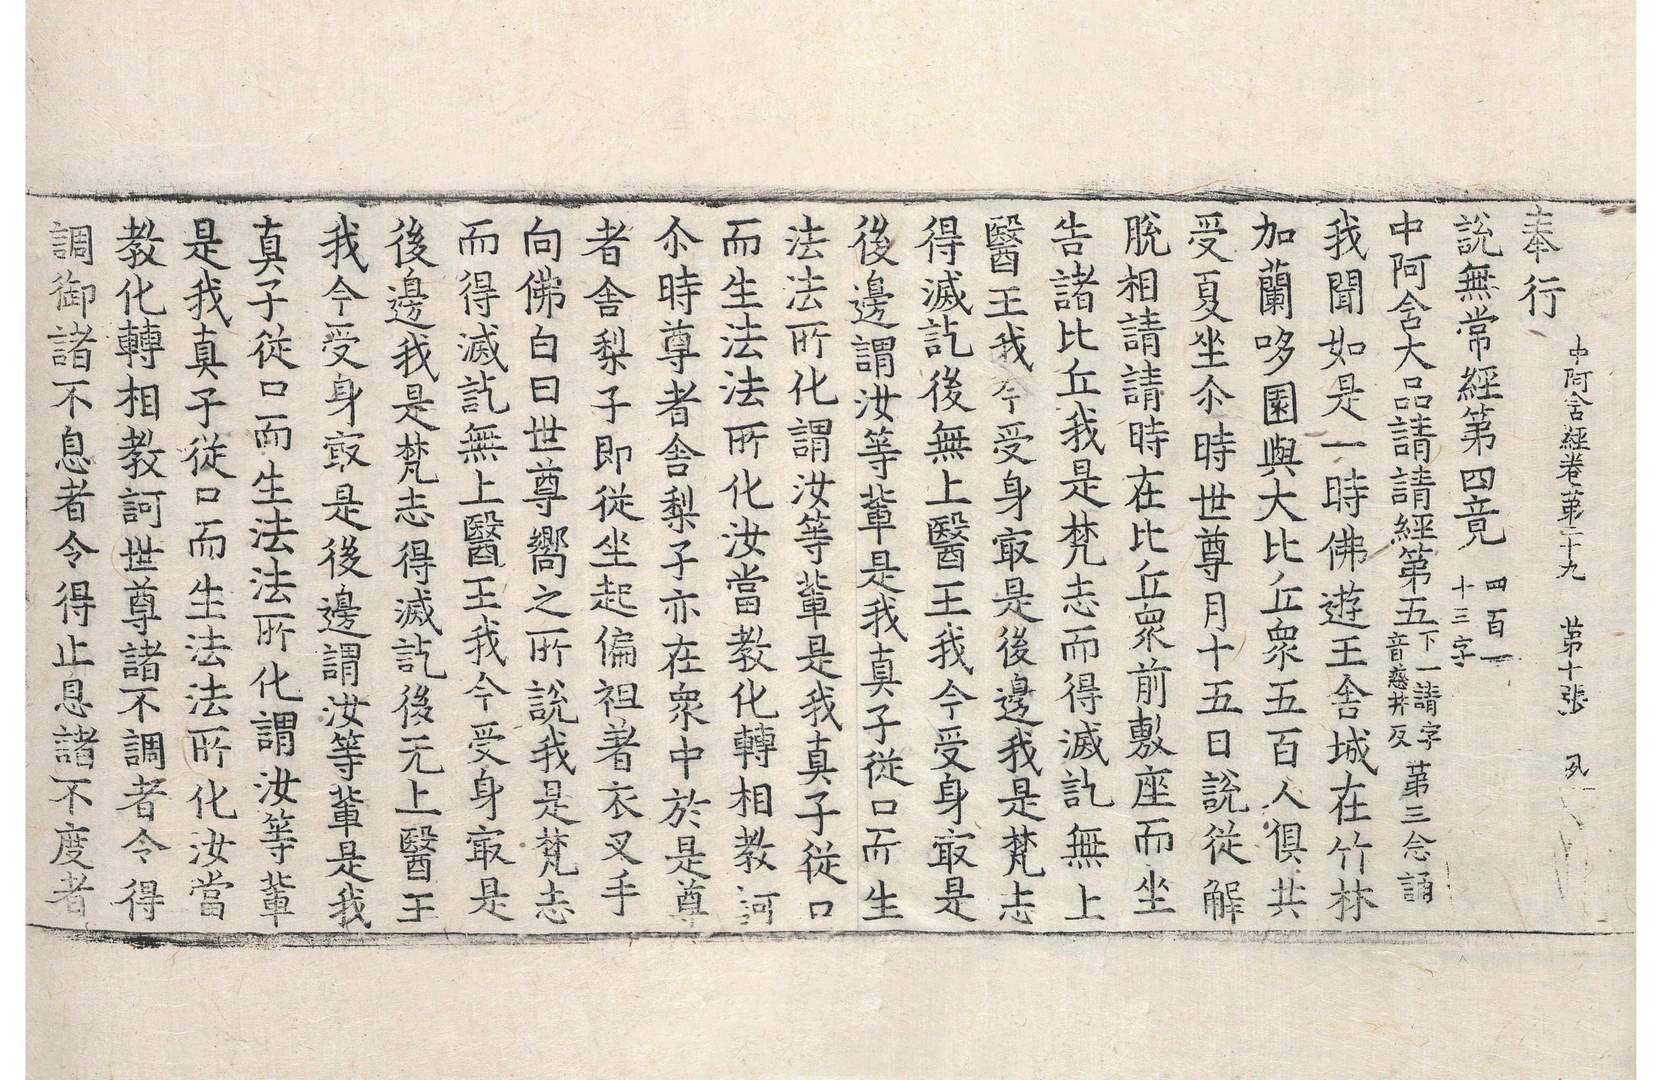 奉行
中阿含經卷第二十九　第十張　夙
說無常經第四竟 四百一十三字
中阿含大品請請經第五 下一請字音慈井反 第三念誦
我聞如是一時佛遊王舍城在竹林
加蘭哆園與大比丘衆五百人俱共
受夏坐尒時世尊月十五日說從解
脫相請請時在比丘衆前敷座而坐
告諸比丘我是梵志而得滅訖無上
醫王我今受身㝡是後邊我是梵志
得滅訖後無上醫王我今受身㝡是
後邊謂汝等輩是我真子從口而生
法法所化謂汝等輩是我真子從口
而生法法所化汝當教化轉相教訶
尒時尊者舍梨子亦在衆中於是尊
者舍梨子即從坐起偏袒著衣叉手
向佛白曰世尊嚮之所說我是梵志
而得滅訖無上醫王我今受身㝡是
後邊我是梵志得滅訖後无上醫王
我今受身㝡是後邊謂汝等輩是我
真子從口而生法法所化謂汝等輩
是我真子從口而生法法所化汝當
教化轉相教訶世尊諸不調者令得
調御諸不息者令得止息諸不度者